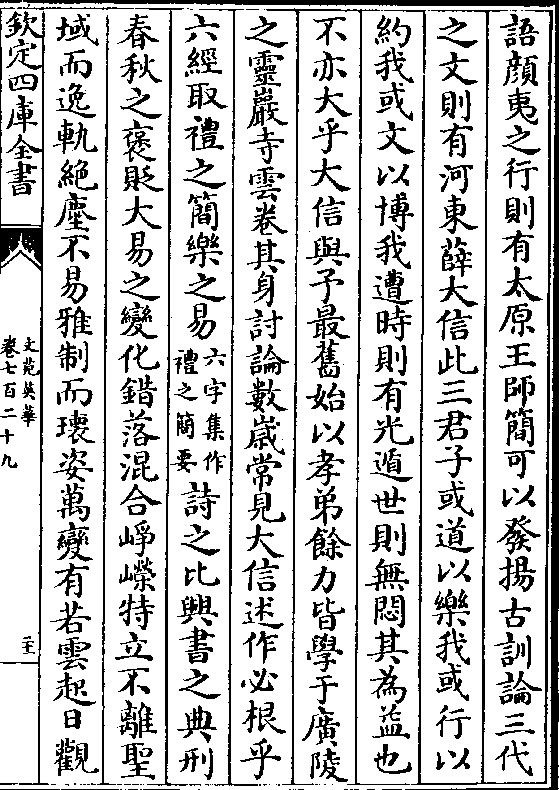 語顔夷之行則有太原王師簡可以發揚古訓論三代
之文則有河東薛大信此三君子或道以樂我或行以
約我或文以博我遭時則有光遁世則無悶其為益也
不亦大乎大信與予最舊始以孝弟餘力皆學于廣陵
之靈巖寺雲卷其身討論數歳常見大信述作必根乎
六經取禮之簡樂之易六字集作禮之簡要詩之比興書之典刑
春秋之褒貶大易之變化錯落混合崢嶸特立不離聖
域而逸軌絶塵不易雅制而瓌姿萬變有若雲起日觀
欽定四庫全書
文苑英華
卷七百二十九